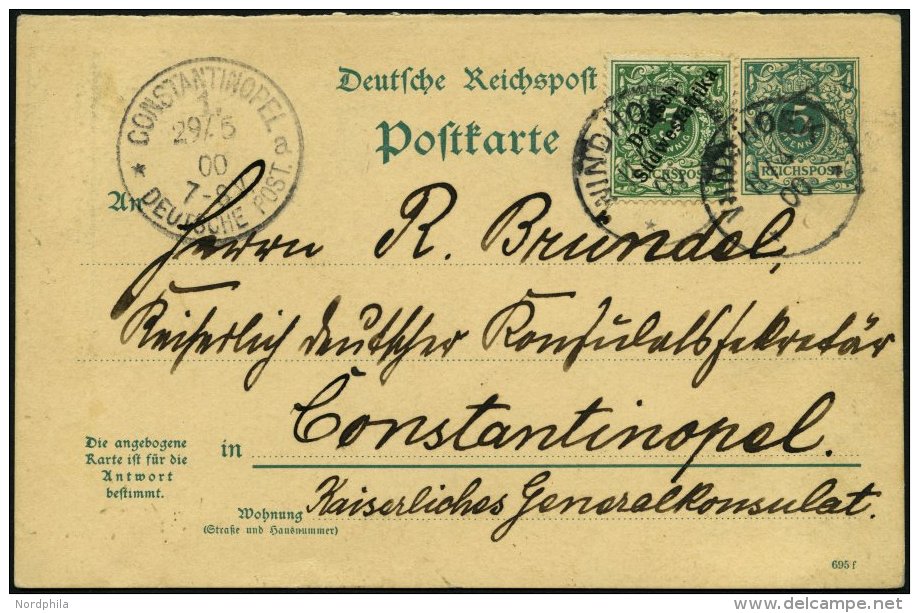 Deutsche Reichspost
Postkarte
CONSTANTINOPEL a
1
29/5
00
7-8V.
* DEUTSCHE POST.
Deutsch-
Südwestafrika
REICHSPOST
WINDHOEK
5
PFENNIG
REICHSPOST
WINDHOEK
00
An
Herrn R. Brundel,
Keiserlich deutscher Konsulatssekretär
in Constantinopel.
Die angebogene
Karte ist für die
Antwort
bestimmt.
Wohnung Kaiserliches Generalkonsulat.
(Straße und Hausnummer)
695 f
Nordphila
delcampe.net